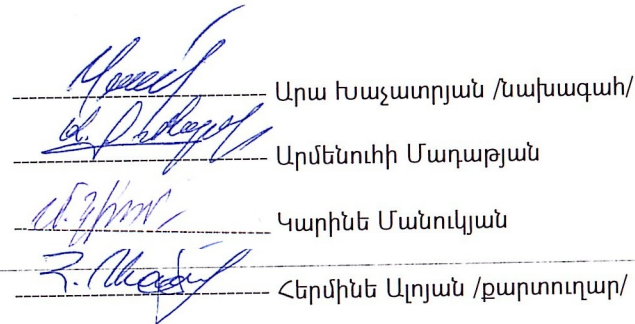 Արա Խաչատրյան /նախագահ/
Արմենուհի Մադաթյան
Կարինե Մանուկյան
Հերմինե Ալոյան /քարտուղար/